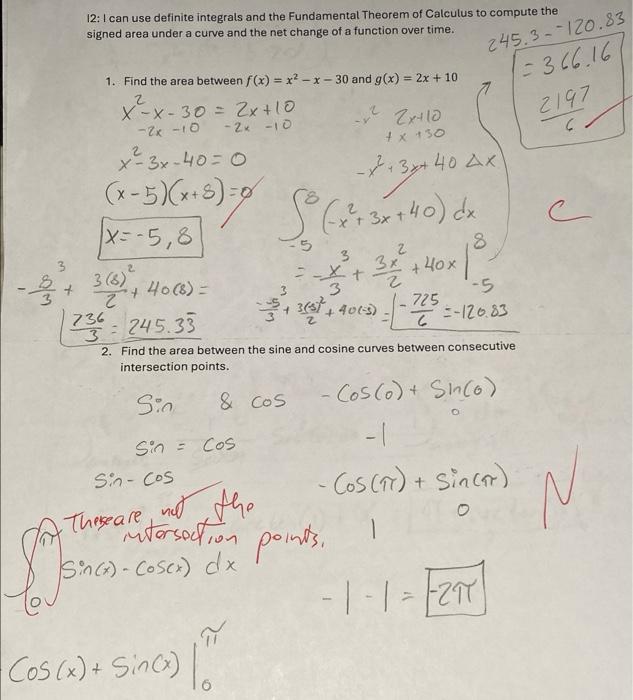 I2: I can use definite integrals and the Fundamental Theorem of Calculus to compute the
signed area under a curve and the net change of a function over time.
245.3 - -120.83
= 366.16
2197/6
1. Find the area between f(x) = x² − x − 30 and g(x) = 2x + 10
x² - x - 30 = 2x + 10
-2x -10 -2x -10
x² - 3x - 40 = 0
(x - 5)(x + 8) = 0
x = -5, 8
-x² 2x+10
+ x +30
-x² + 3x + 40 Δx
∫₋₅⁸ (-x² + 3x + 40) dx
C
= -x³/3 + 3x²/2 + 40x |₋₅⁸
-8³/3 + 3(8)²/2 + 40(8) =
736/3 = 245.33
--5³/3 + 3(-5)²/2 + 40(-5) = -725/6 = -120.83
2. Find the area between the sine and cosine curves between consecutive
intersection points.
Sin & cos
Sin = Cos
Sin - Cos
These are not the
intersection points.
∫₀^π Sin(x) - Cos(x) dx
Cos(x) + Sin(x) |₀^π
- Cos(0) + Sin(0)
0
-1
- Cos(π) + Sin(π)
0
1
-1 - 1 = -2π
N